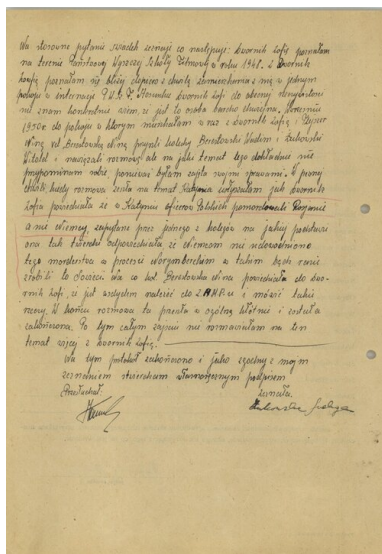 Na stawione pytanie świadek zeznaje co następuje: Dwornik Zofię poznałam
na terenie Państwowej Wyższej Szkoły Filmowej w roku 1948. z Dwornik
Zofią poznałam się bliżej dopiero z chwilą zamieszkania z nią w jednym
pokoju w internacie P.W.S.F. Stosunku Dwornik Zofii do obecnej rzeczywistości
nie znam konkretnie wiem, że jest to osoba bardzo
1950r do pokoju w którym mieszkałam wraz z Dwornik Zofią i
Niną vel Bereztowską Niną przyszli koledzy Berestowski Wadim i
Witold i nawiązali rozmowę, ale na jaki temat tego dokładnie nie
przypominam sobie, ponieważ byłam zajęta swoimi sprawami. W pewnej
chwili kiedy rozmowa zeszła na temat Katynia usłyszałam jak Dwornik
Zofia powiedziała że w Katyniu oficerów Polskich pomordowali Rosjanie
a nie Niemcy, zapytana przez jednego z kolegów na jakiej podstawie
ona tak twierdzi odpowiedziała że Niemcom nie udowodniono
tego morderstwa a procesie norymberskim a takim będąc ranie
zrobili to Sowieci ale co kol Berestowska Nina powiedziała do Dwo-
rnik Zofii, że jest wstydem należeć do Z.A.M.P.u i mówić takie
rzeczy. W końcu rozmowa ta przeszła w ogólną kłótnię i została
zakończona. Po tym całym zajściu nie rozmawiałam na ten
temat więcej z Dwornik Zofią.
Na tym protokół zakończono i jako zgodny z moim
zeznaniem stwierdzam własnoręcznym podpisem
Przesłuchał Zeznała: